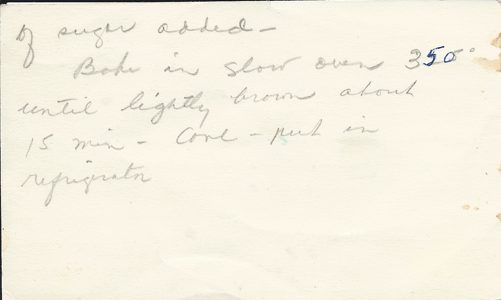 of sugar added -
Bake in slow oven 350°
until lightly brown about
15 min - Cool - put in
refrigirator